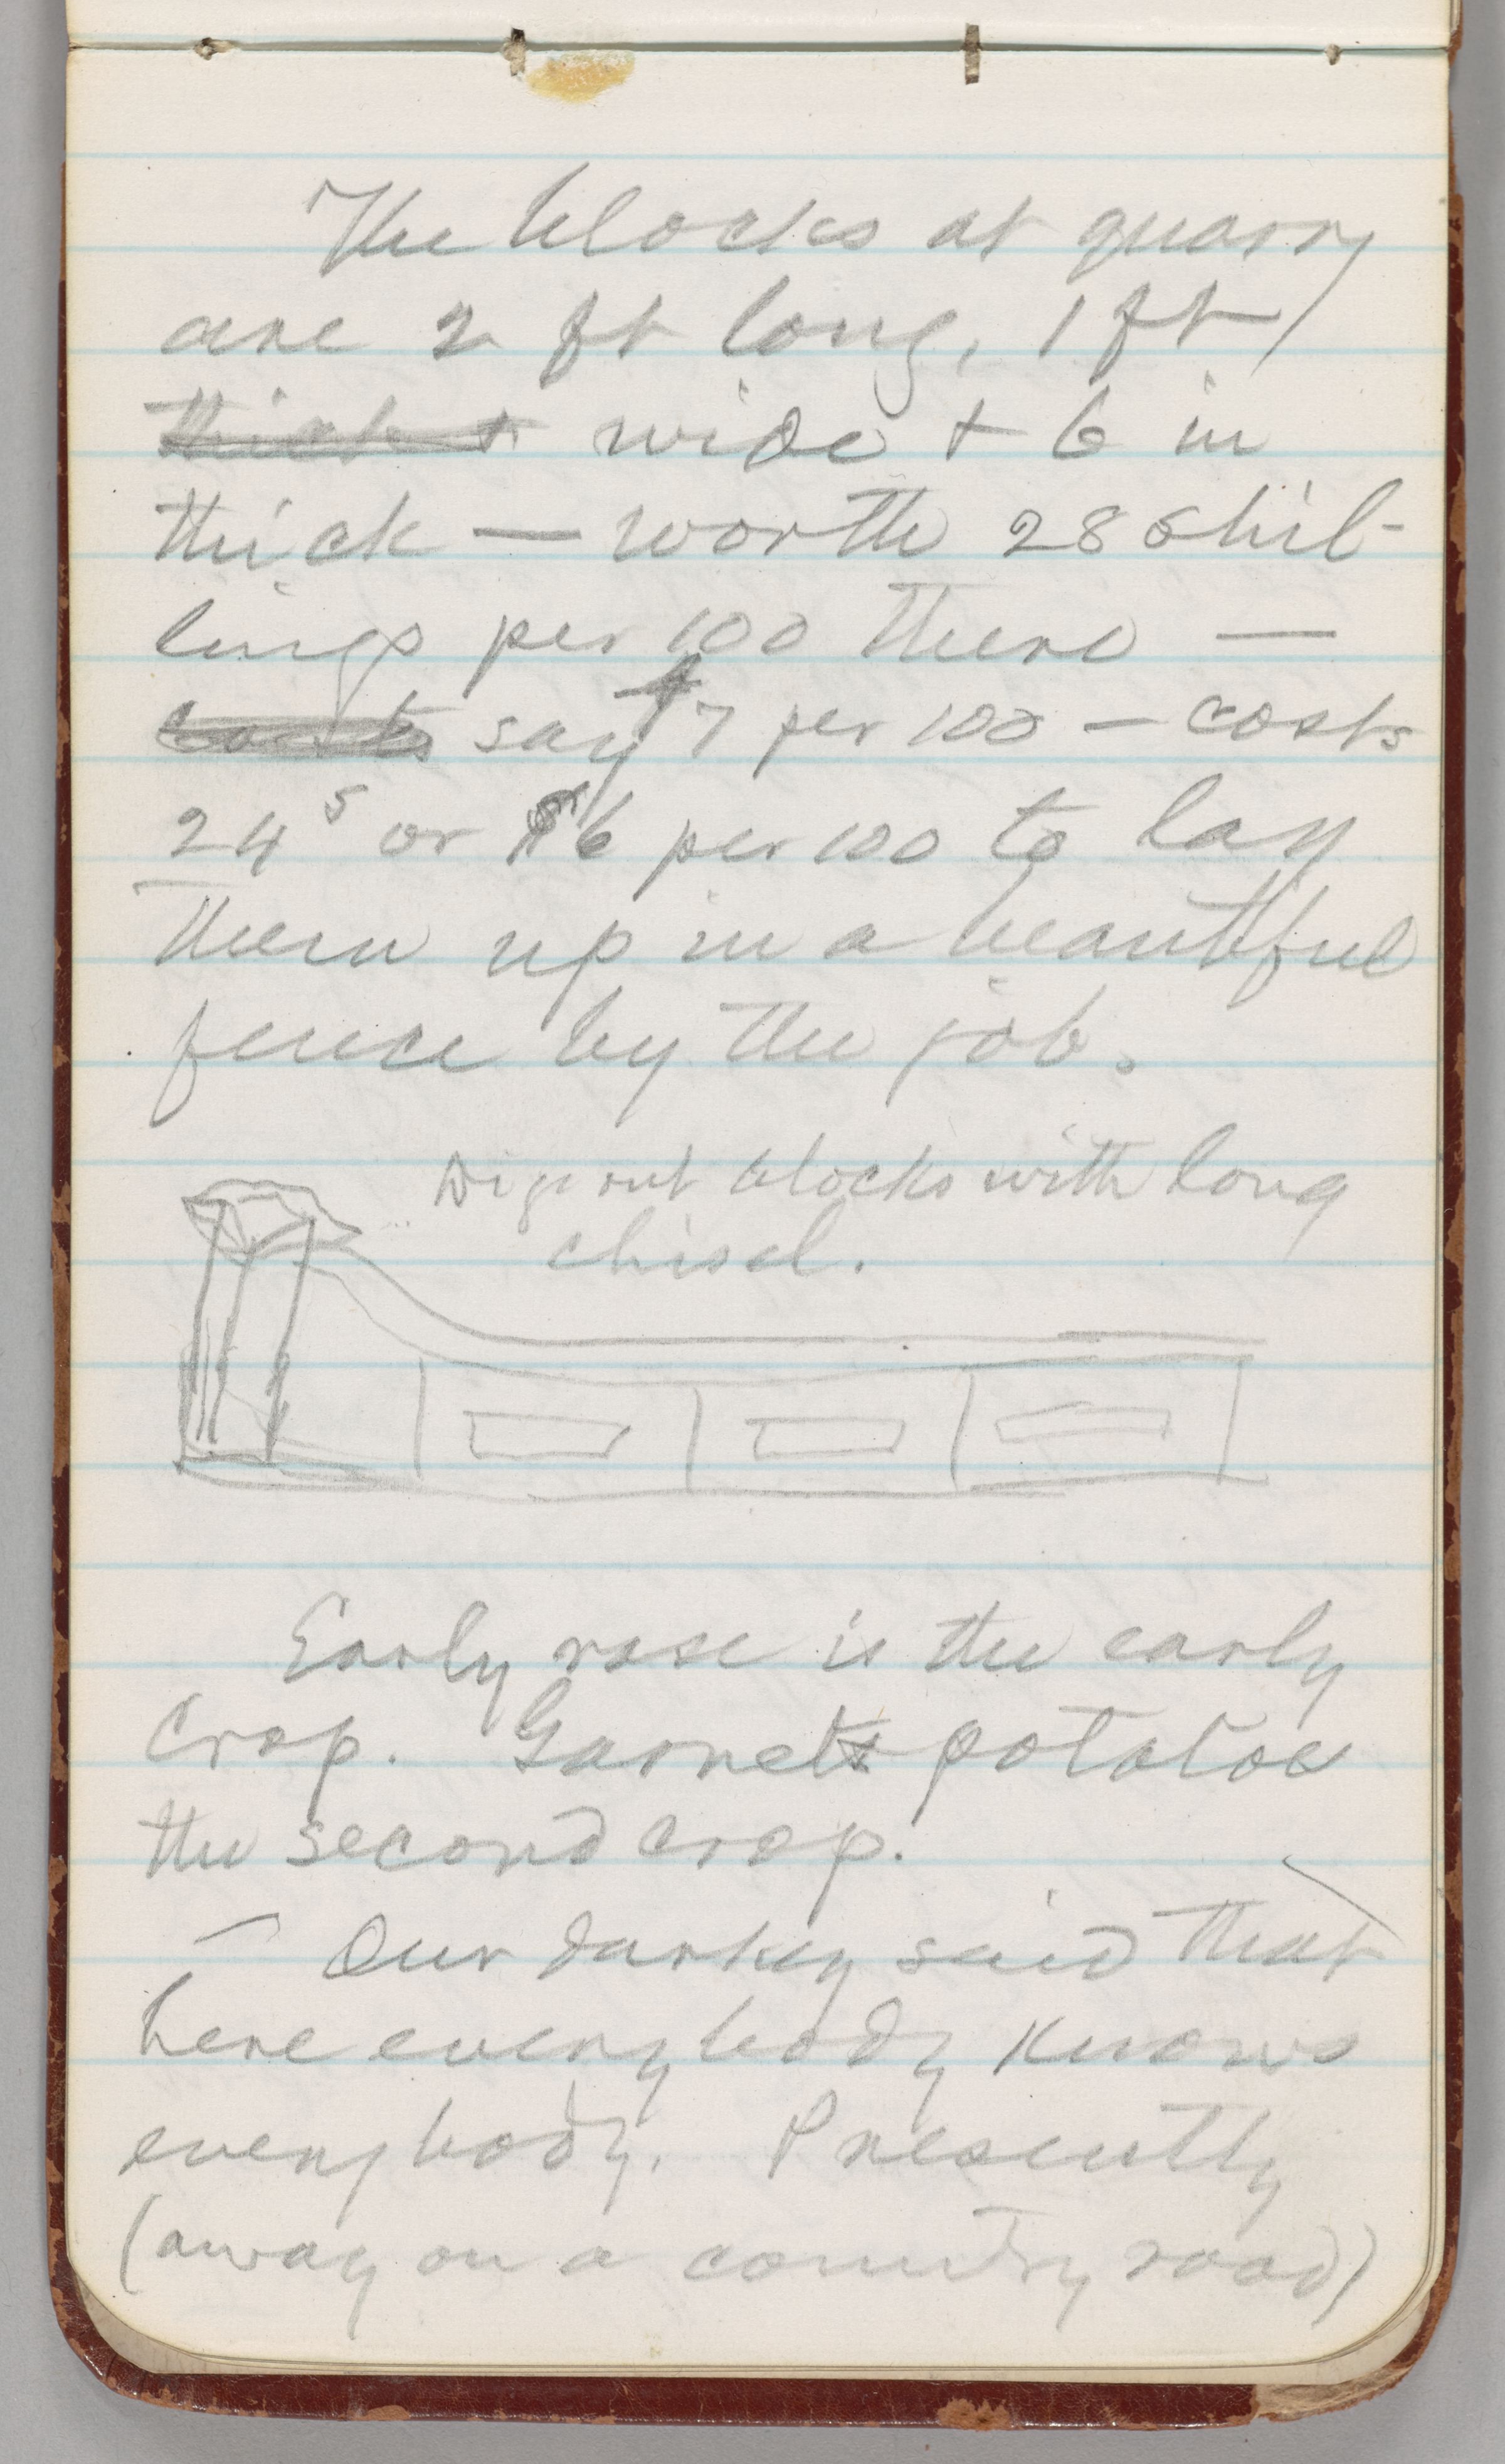 The blocks at quarry
are 2 ft long, 1 ft
thick + wide + 6 in
thick — worth 28 shil-
lings per 100 there —
costs say $7 per 100 — costs
24s or $6 per 100 to lay
them up in a beautiful
fence by the job.
Dig out blocks with long
chisel.
Early rose is the early
crop. Garnet potatoe
the second crop.
— Our darkey said that
here everybody knows
everybody. Presently
(away on a country road)